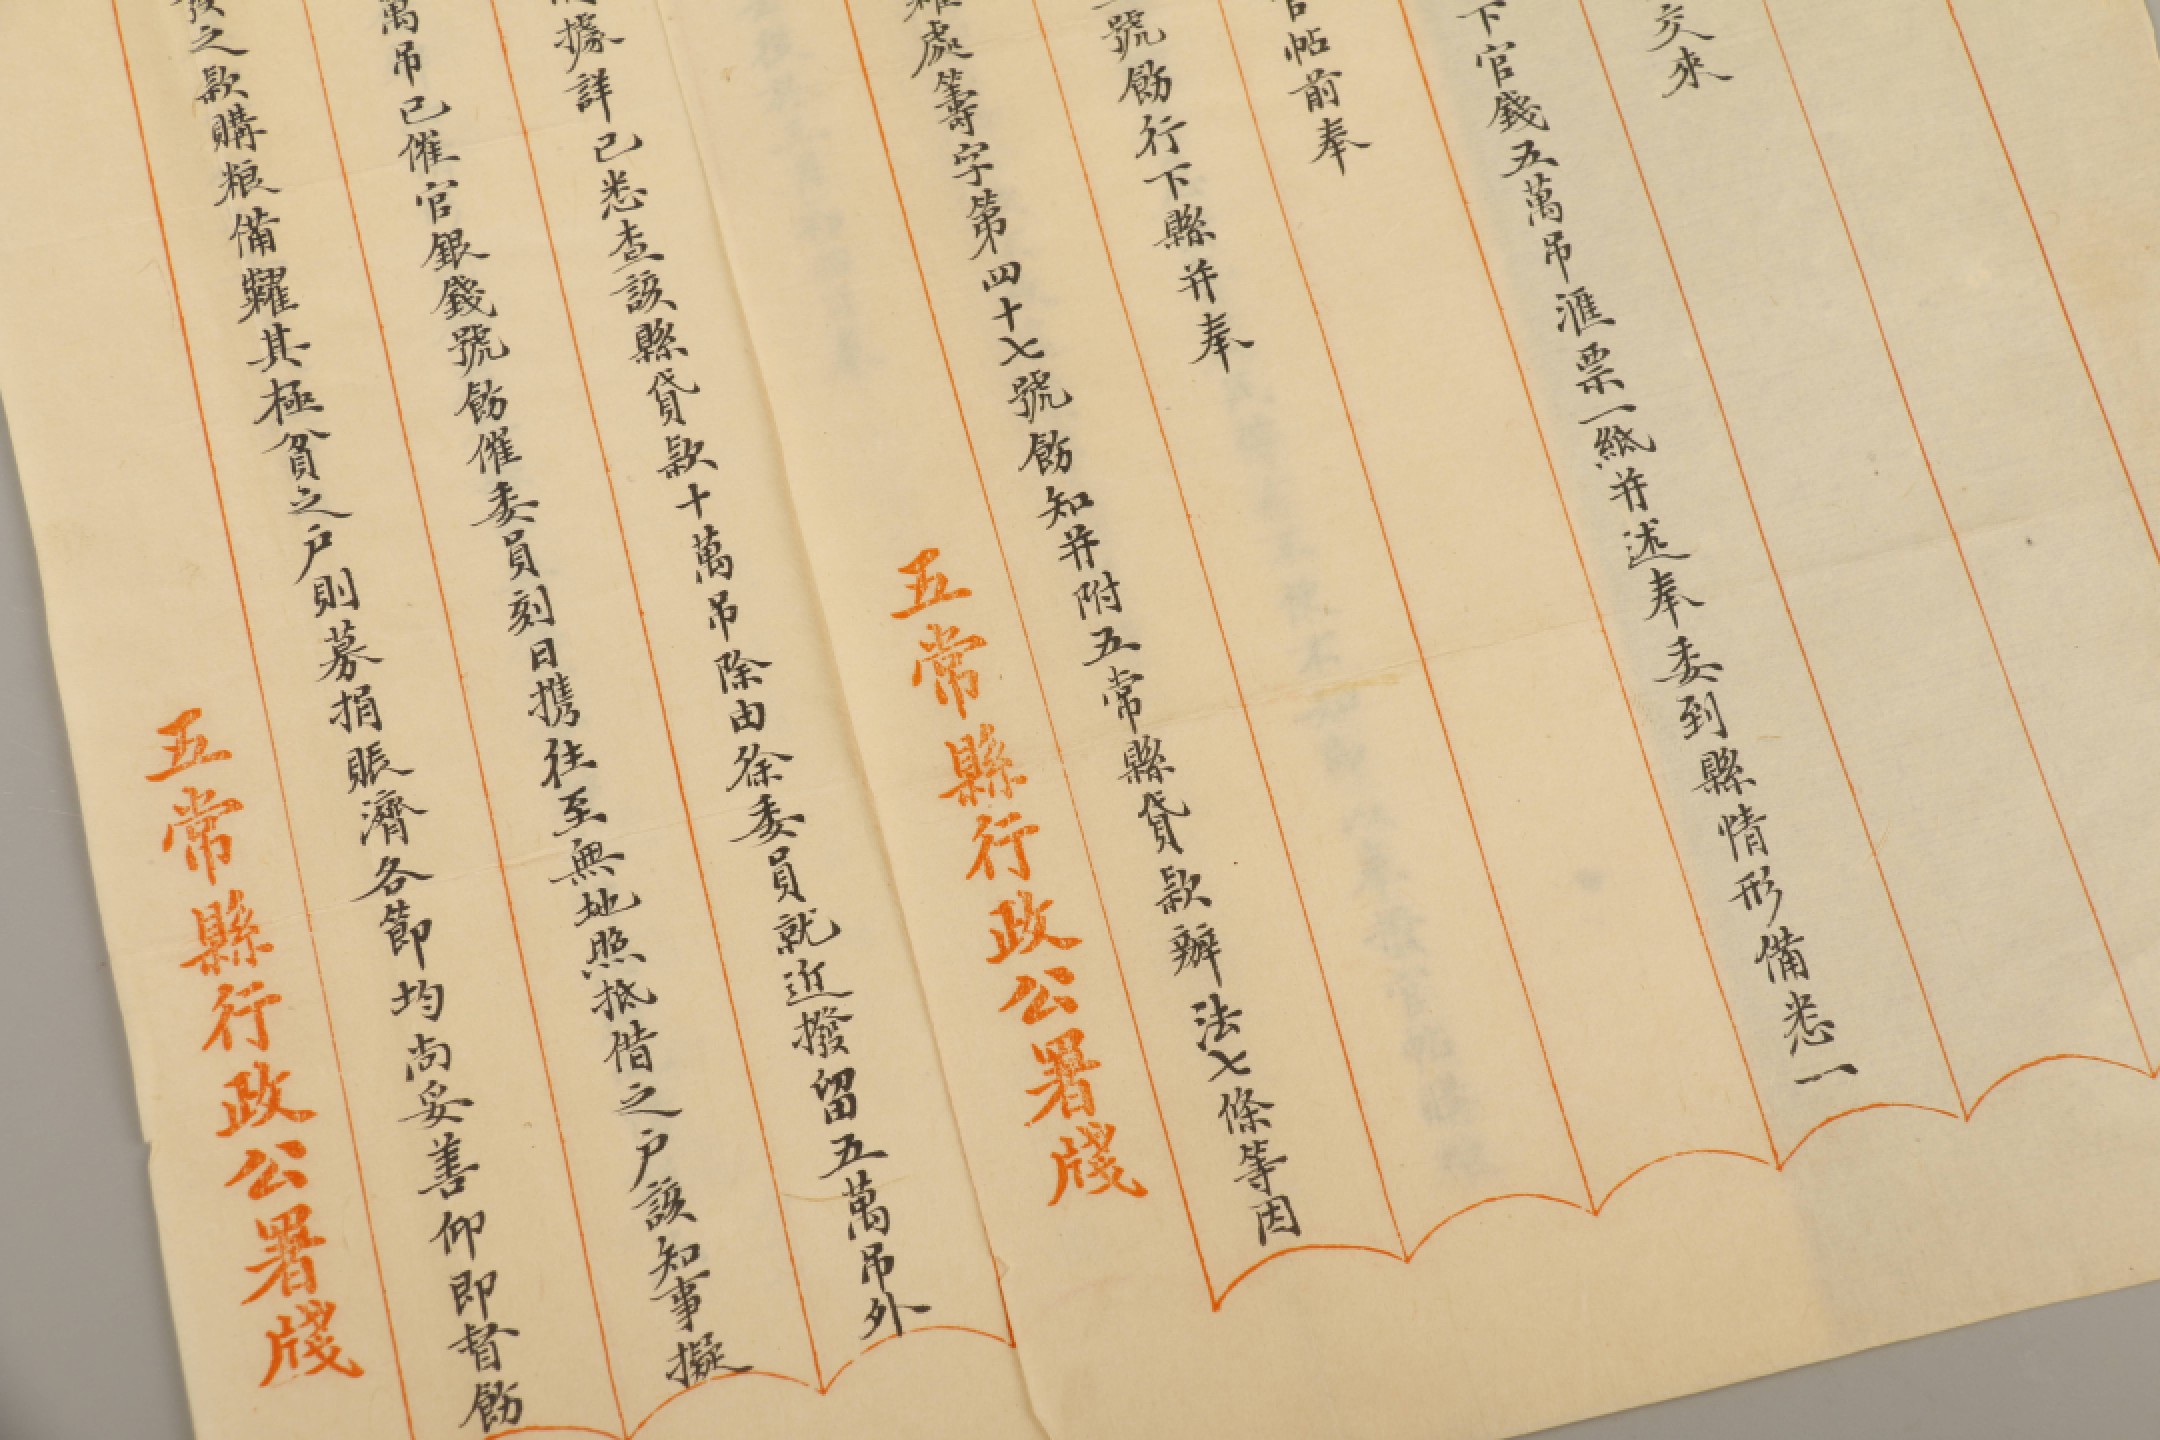 交來
下官錢五萬吊滙票一紙并述奉委到縣情形備悉一
帖前奉
號飭行下縣并奉
處籌字第四十七號飭知并附五常縣貸款辦法七條等因
五常縣行政公署牋
據詳已悉查該縣貸款十萬吊除由徐委員就近撥留五萬吊外
萬吊已催官銀錢號飭催委員刻日携往至無地照抵借之戶該知事擬
之款購粮備糶其極貧之戶則募捐賑濟各節均尚妥善仰即督飭
五常縣行政公署牋